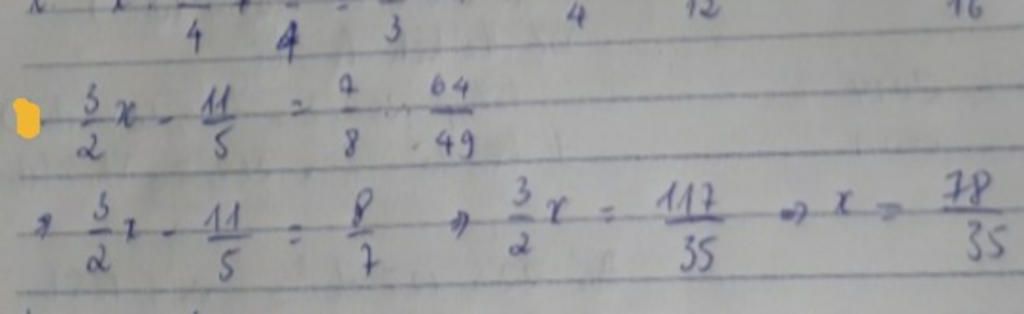 4 4 3 4 12 16
3/2 x - 11/5 = 7/8 . 64/49
⇒ 3/2 x - 11/5 = 8/7 ⇒ 3/2 x = 117/35 ⇒ x = 78/35